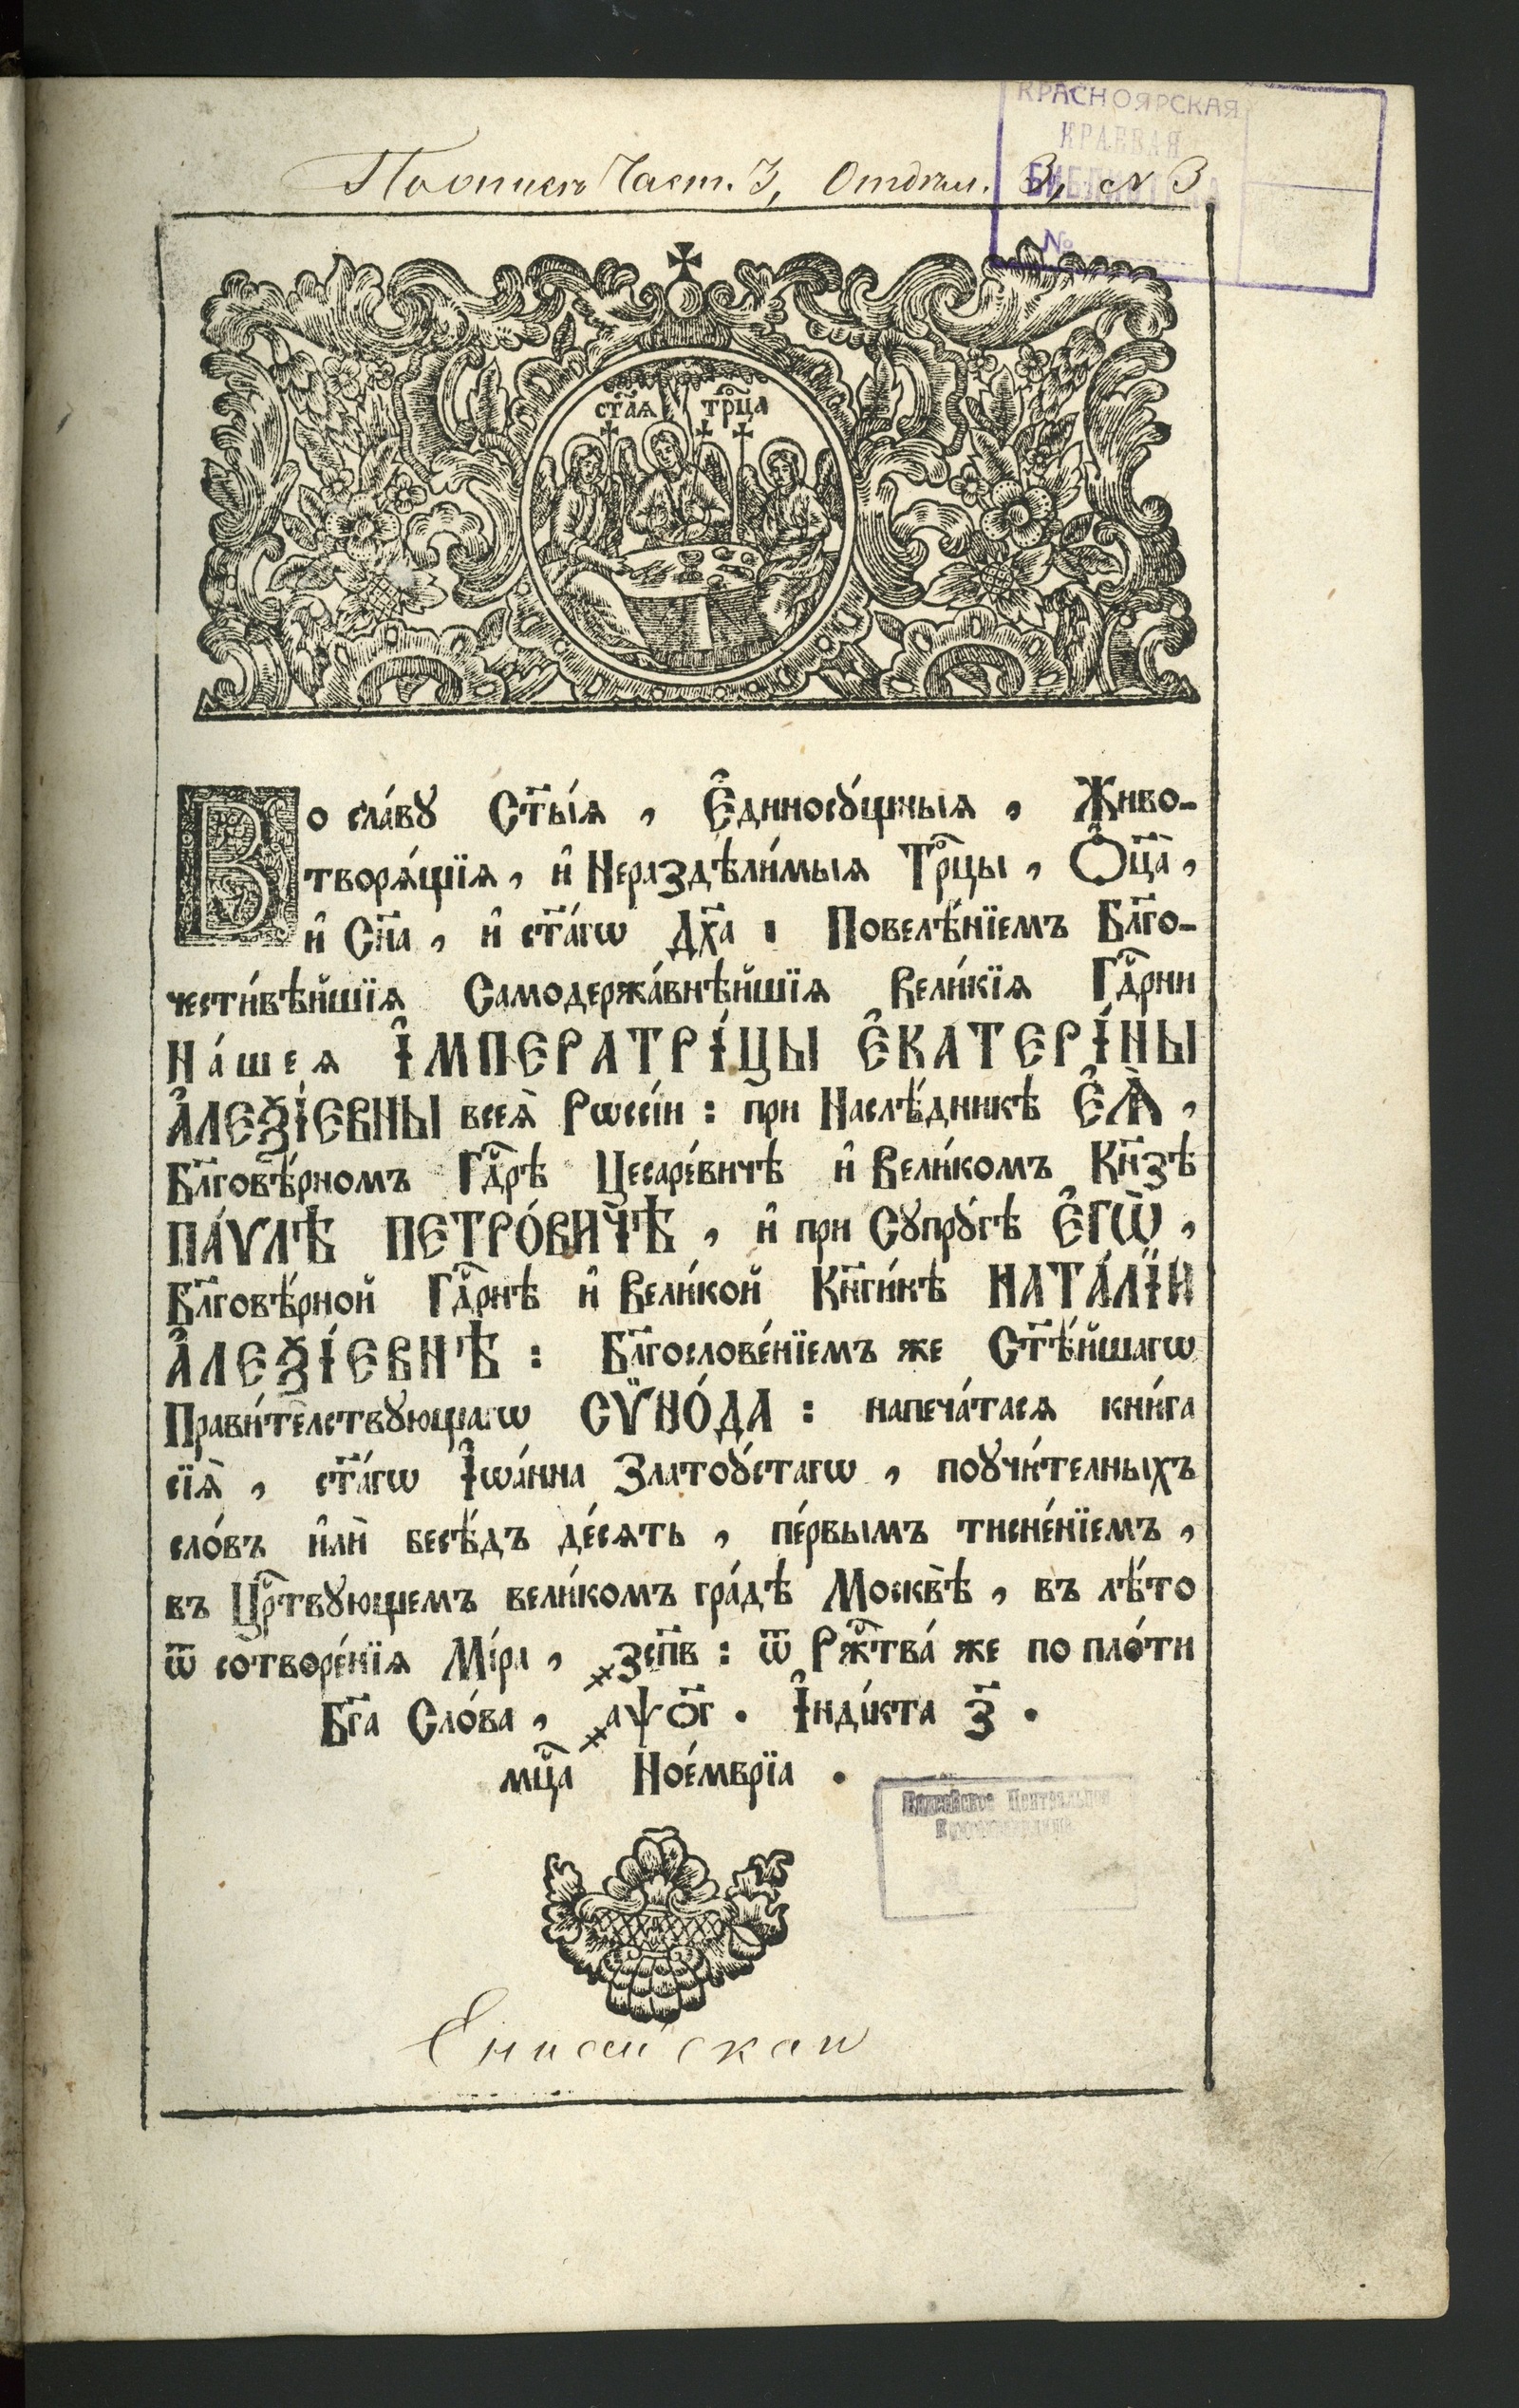 КРАСНОЯРСКАЯ
КРАЕВАЯ
БИБЛИОТЕКА
№
По описи Част. 3, Отдѣл. 3, N 3
ст҃а́ѧ трⷪ҇ца
Во сла́вꙋ Ст҃ы́ѧ, Є҆диносꙋ́щныѧ, Живо-
творѧ́щїѧ, и҆ Нераздѣли́мыѧ Трⷪ҇цы, Ѻ҆ц҃а̀,
и҆ Сн҃а, и҆ ст҃а́гѡ Дх҃а: Повелѣ́нїемъ Бл҃го-
чести́вѣйшїѧ Самодержа́внѣйшїѧ Вели́кїѧ Гдⷭ҇рни
На́шеѧ І҆МПЕРАТРІ́ЦЫ Є҆КАТЕРІ́НЫ
А҆ЛЕѮІ́ЕВНЫ всеѧ̀ Рѡссі́и: при Наслѣ́дникѣ Є҆Ѧ̀,
Бл҃говѣ́рномъ Гдⷭ҇рѣ Цесаре́вичѣ и҆ Вели́комъ Кн҃зѣ
ПА́ѴЛѢ ПЕТРО́ВИЧѢ, и҆ при Сꙋпрꙋ́гѣ Є҆ГѠ̀,
Бл҃говѣ́рной Гдⷭ҇рнѣ и҆ Вели́кой Кн҃ги́нѣ НАТА́ЛЇИ
А҆ЛЕѮІ́ЕВНѢ: Бл҃гослове́нїемъ же Ст҃ѣ́йшагѡ
Прави́телствꙋющагѡ СѴ̈НО́ДА: напеча́тасѧ кни́га
сїѧ̀, ст҃а́гѡ І҆ѡа́нна Златоꙋ́стагѡ, поꙋчи́телныхъ
сло́въ и҆лѝ бесѣ́дъ де́сѧть, пе́рвымъ тисне́нїемъ,
въ Црⷭ҇твꙋющемъ вели́комъ гра́дѣ Москвѣ̀, въ лѣ́то
ѿ сотворе́нїѧ Мі́ра, ҂зсп҃в: ѿ Ржⷭ҇тва́ же по пло́ти
Бг҃а Сло́ва, ҂аѱо҃г. І҆нді́кта з҃.
мцⷭ҇а Ное́мврїа.
Енисейское Центральное
Енисейскаи